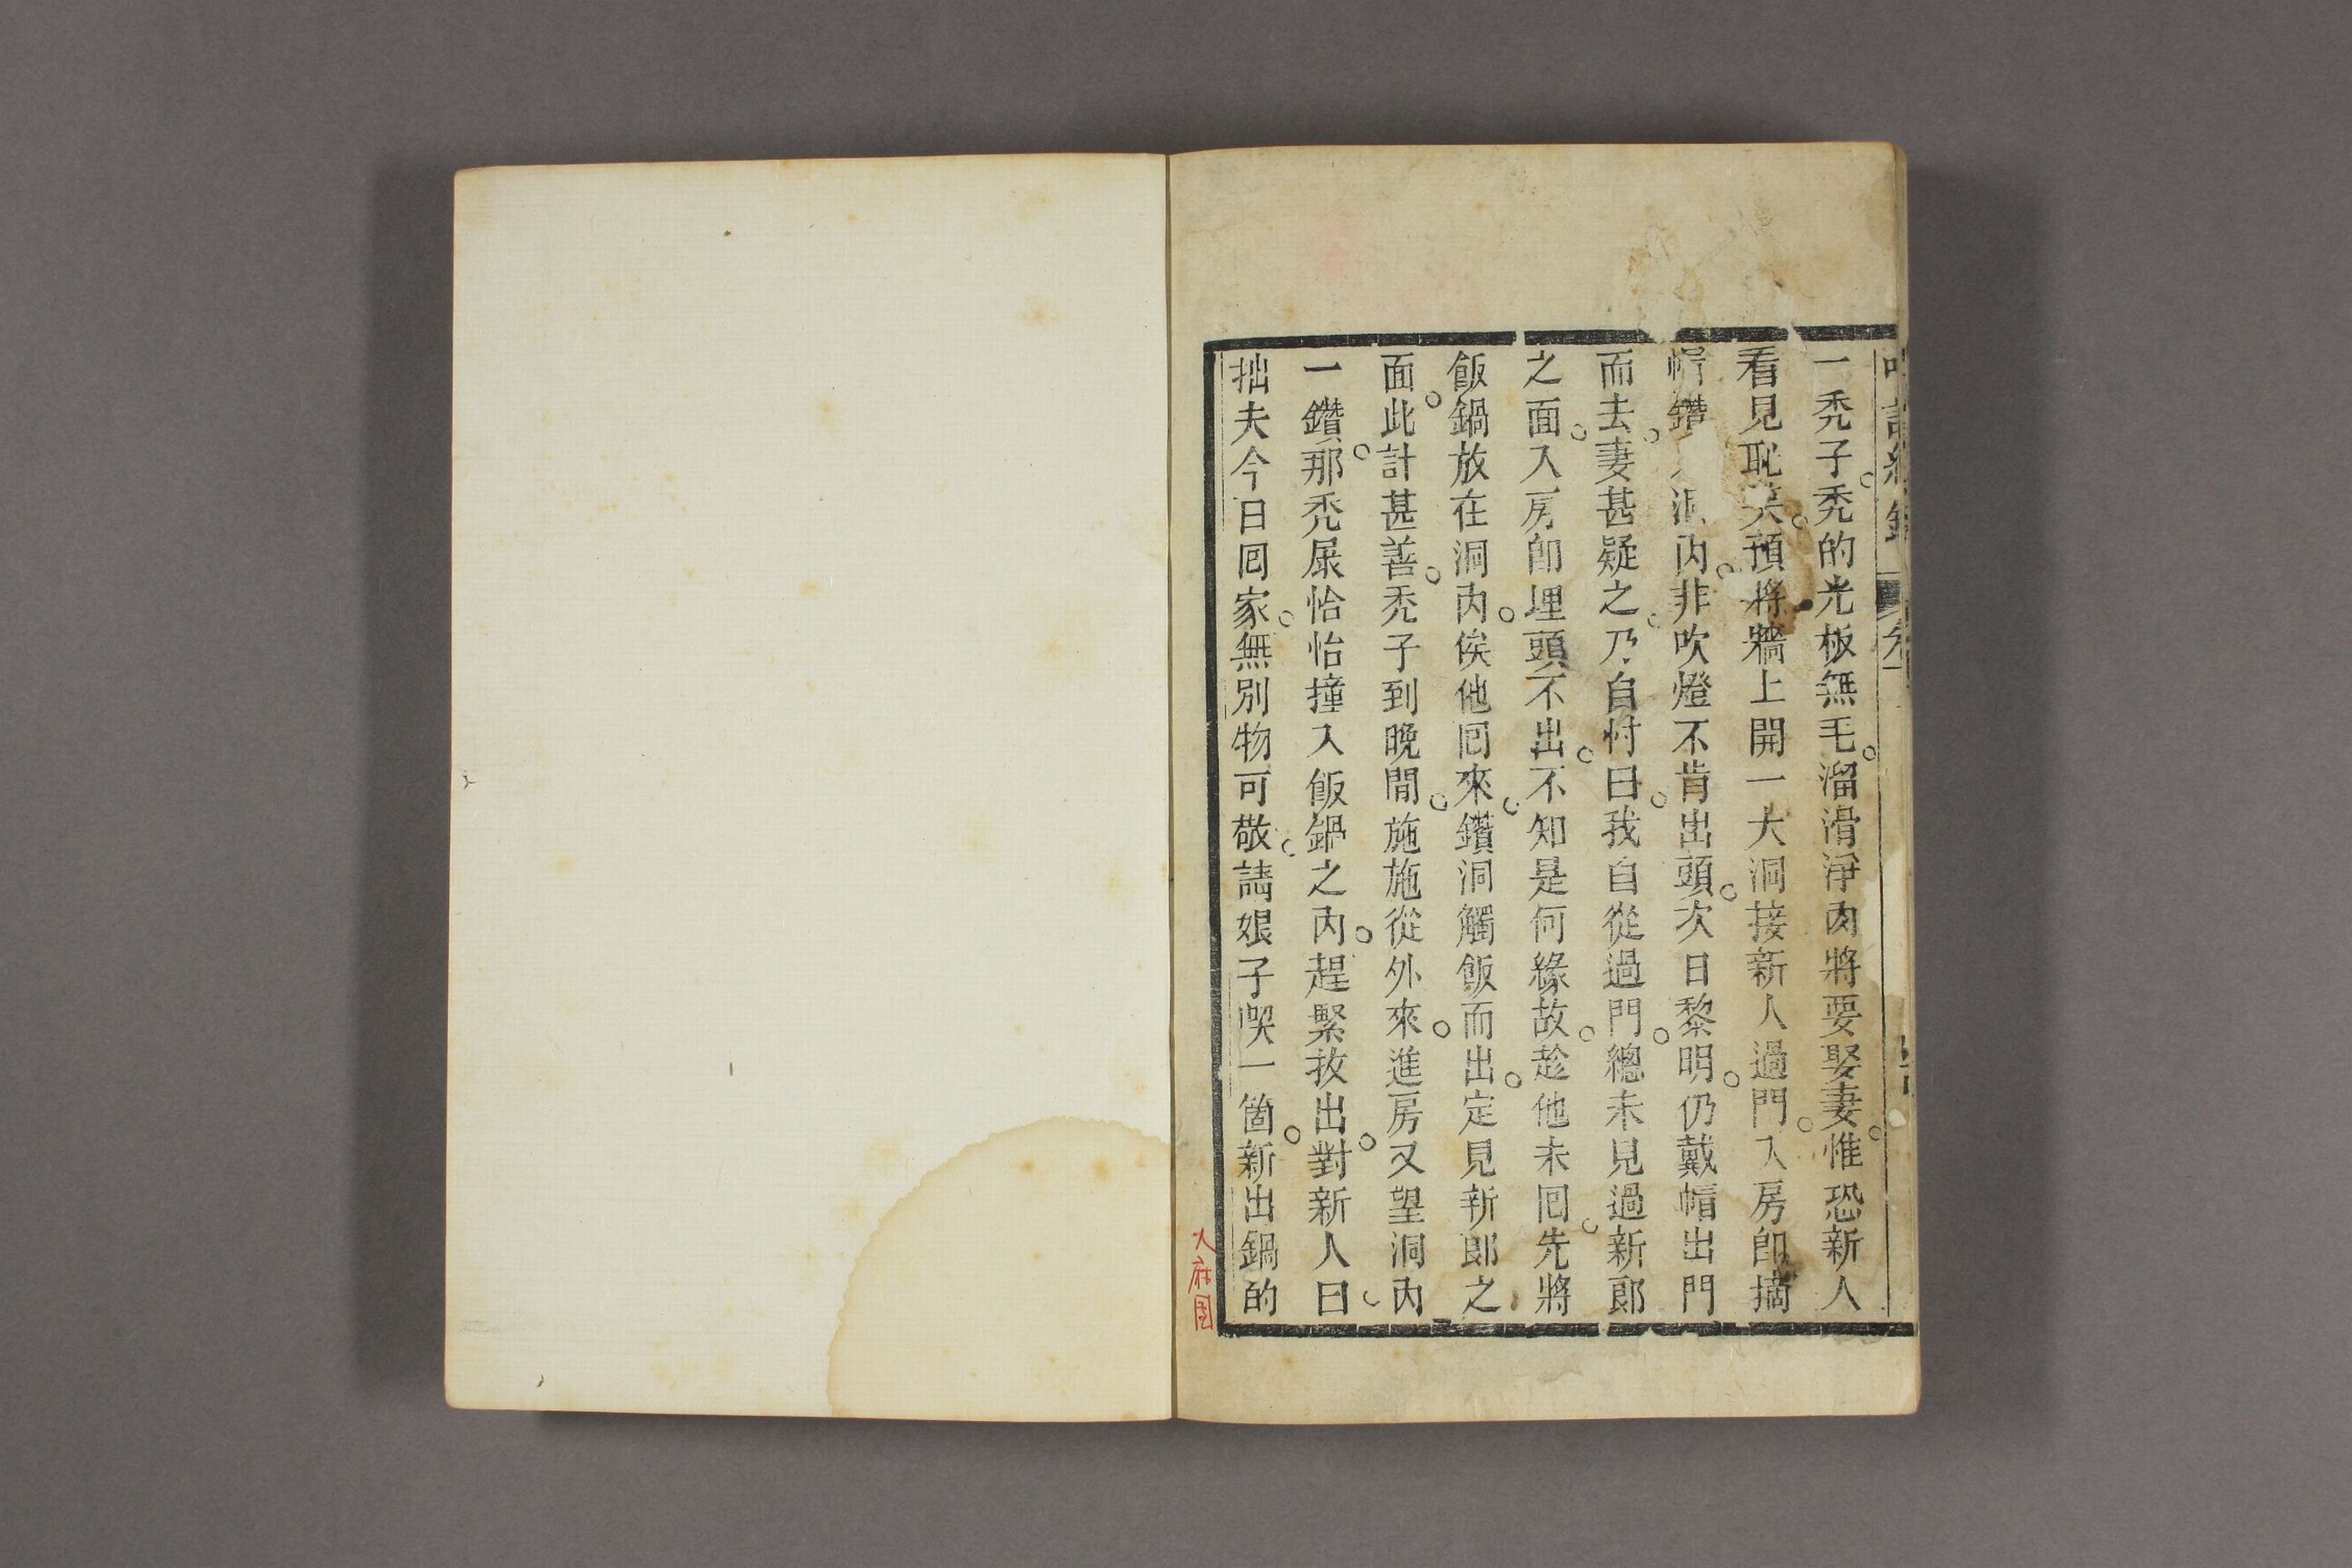 一禿子。禿的光板無毛。溜滑淨肉將要娶妻。惟恐新人
看見恥笑。預將牆上開一大洞接新人過門。入房卽摘
帽鑽入洞內。非吹燈不肯出頭。次日黎明。仍戴帽出門
而去。妻甚疑之。乃自忖曰。我自從過門。總未見過新郎
之面。入房卽埋頭不出。不知是何緣故。趁他未囘。先將
飯鍋放在洞內。俟他囘來。鑽洞觸飯而出。定見新郎之
面。此計甚善。禿子到晚間。施施從外來。進房又望洞內
一鑽。那禿㞗恰恰撞入飯鍋之內。趕緊扳出。對新人曰。
拙夫今日囘家。無別物可敬。請娘子喫一箇。新出鍋的